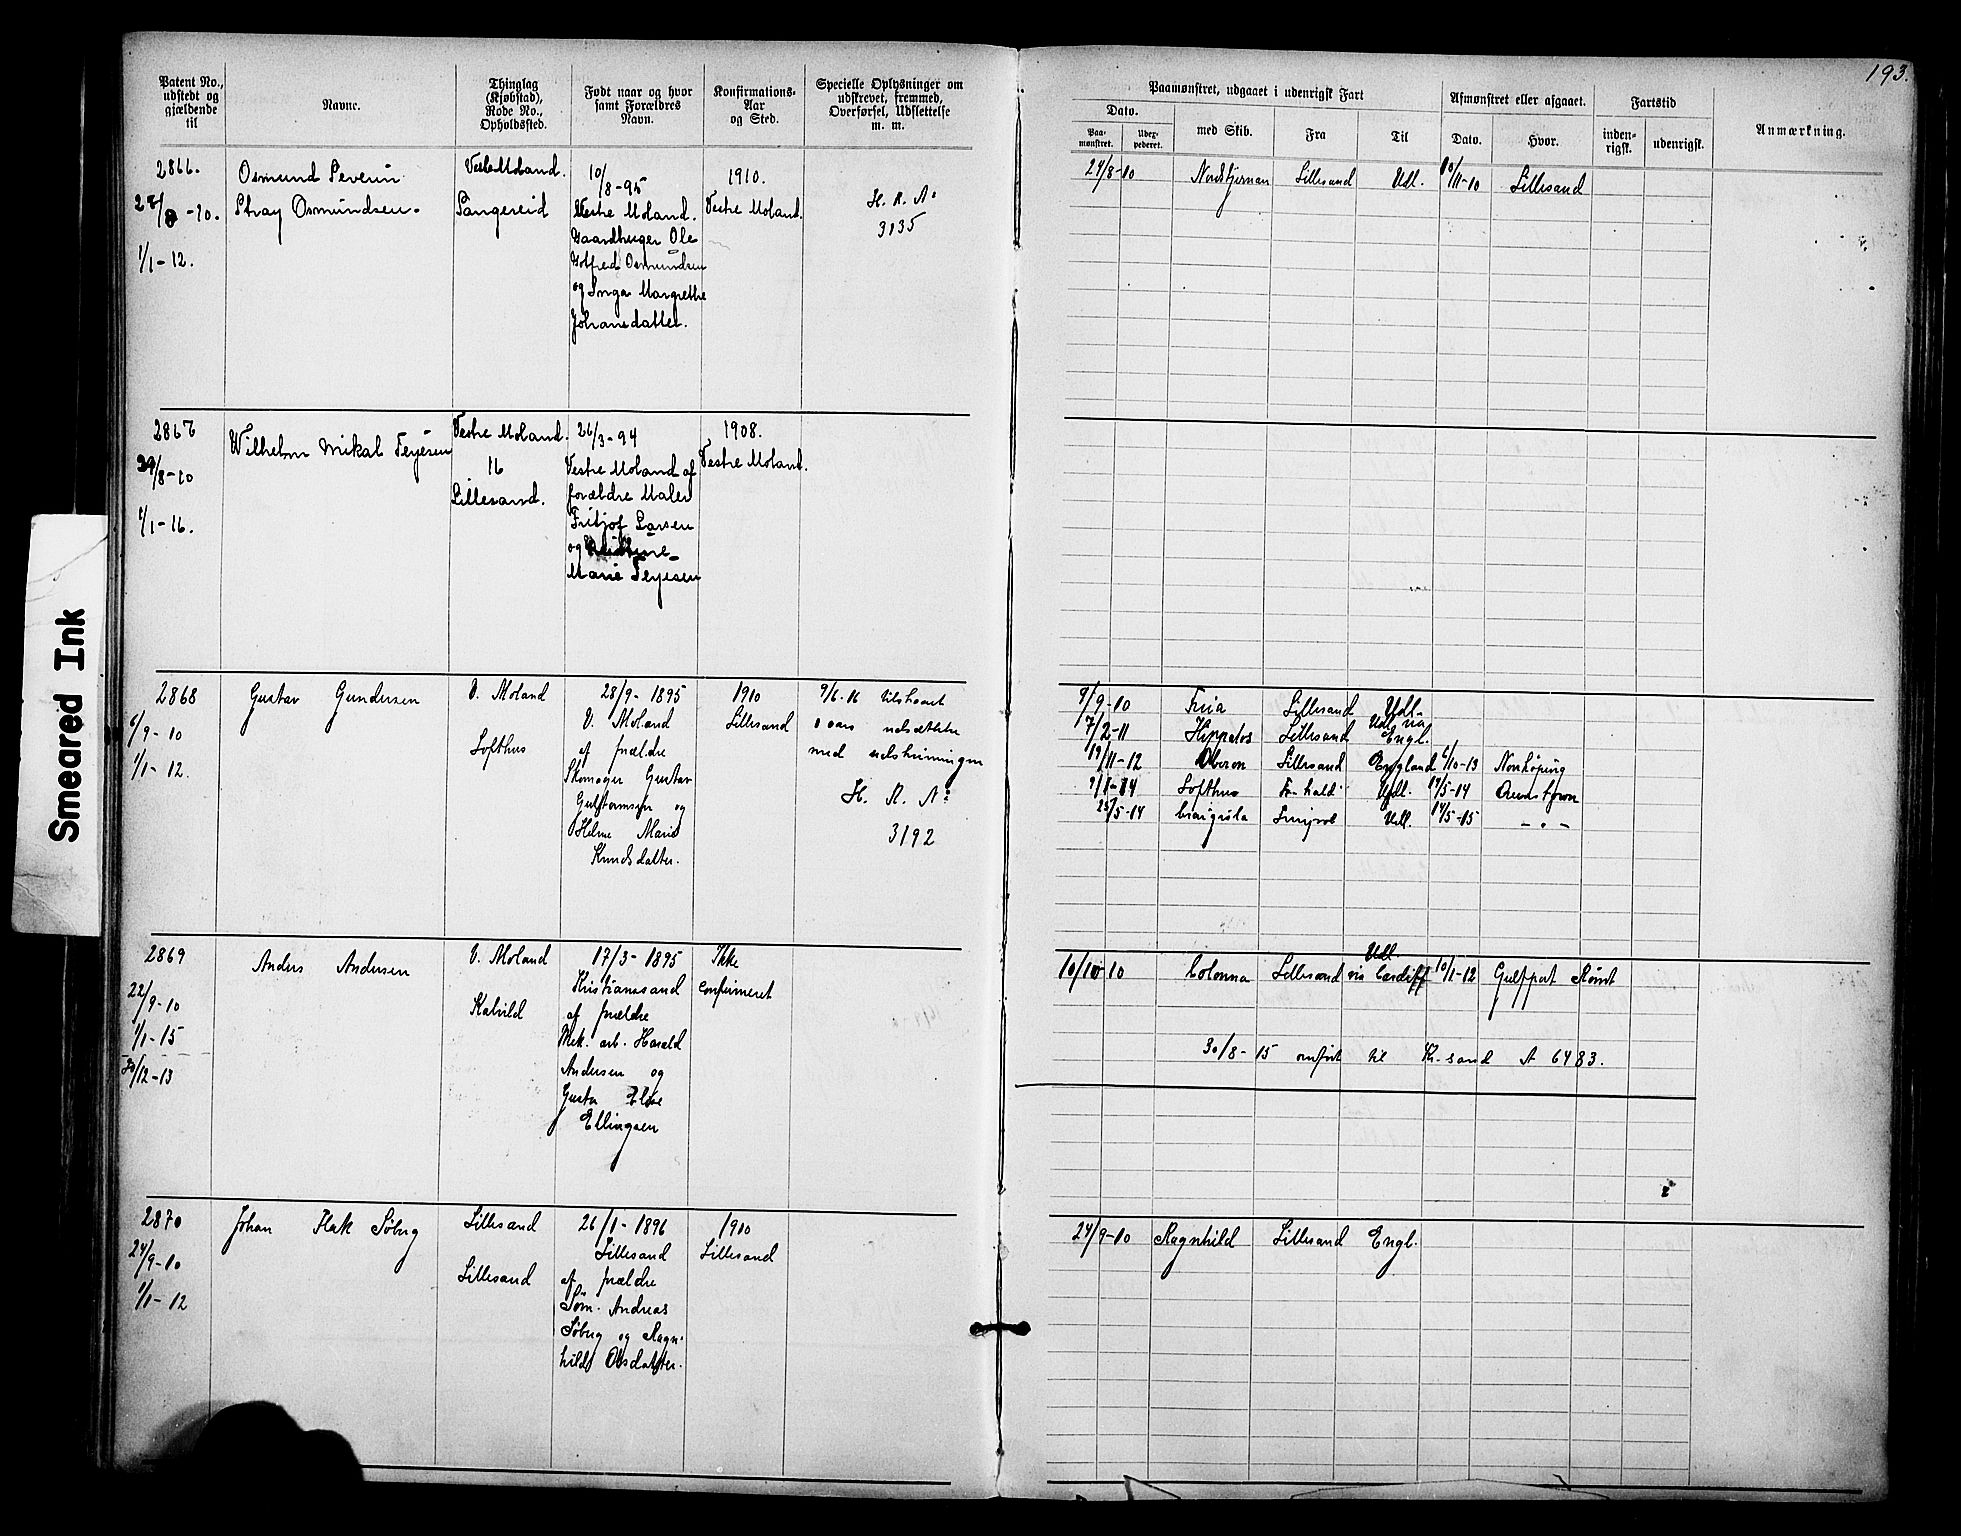 193.
Patent No., udstedt og gjældende til
Navne.
Thinglag (Kjøbstad), Rode No., Opholdssted.
Født naar og hvor samt Forældres Navn.
Konfirmations-Aar og Sted.
Specielle Oplysninger om udskrevet, fremmed, Overførsel, Udslettelse m. m.
Paamønstret, udgaaet i udenrigsk Fart
Afmønstret eller afgaaet.
Fartstid
Anmærkning.
Dato.
Paa-mønstret.
Udex-pederet.
med Skib.
Fra
Til
Dato.
Hvor.
inden-rigsk.
udenrigsk.
2866.
28/8-10.
1/1-12.
Osmund Severin
Stray Osmundsen.
Vestre Moland.
Sangereid
10/8-95
Vestre Moland.
Gaardbruger Ole
Osmundsen
og Inga Margrethe
Johansdatter.
1910.
Vestre Moland.
H. R. A:
3135
27/8-10 Nordstjernan Lillesand Udl. 10/11-10 Lillesand
2867
29/8-10
1/1-16.
Wilhelm Mikal Terjesen
Vestre Moland.
16
Lillesand.
26/3-94
Vestre Moland af
forældre Maler
Fritjof Larsen
og
Marie Terjesen
1908.
Vestre Moland.
2868
6/9-10
1/1-12.
Gustav Gundersen
V. Moland
Lofthus
28/9-1895
V. Moland
af forældre
Skomager Gustav
og
Helene Marie
Knudsdatter.
1910
Lillesand
9/6-16 tilstaaet
2 aars udsættelse
med udskrivningen
H. R. A:
3192
9/9-10 Freia Lillesand Udl.
7/2-11 Hippalos Lillesand Udl. via Engl.
19/11-12 Oberon Lillesand England 6/10-13 Norrköping
9/1-14 Lofthus Fr.hald Udl. 19/5-14
25/5-14 Udl. 14/5-15 - " -
2869
22/9-10
1/1-15
30/12-13
Anders Andersen
V. Moland
Kalvild
17/3-1895
Kristianssand
af forældre
Mek. arb. Harald
Andersen og
Gusta Elise
Ellingsen
Ikke
confirmeret
10/10-10 Colonna Lillesand Udl. via Cardiff 10/1-12 Gulfport Rømt
30/8-15 omført til Kr.sand A 6483.
2870
24/9-10
1/1-12
Johan Flak Søberg
Lillesand
Lillesand
26/1-1896
Lillesand
af forældre
Søm. Andreas
Søberg og Ragn-
hild Olsdatter.
1910
Lillesand
24/9-10 Ragnhild Lillesand Engl.
Smeared Ink